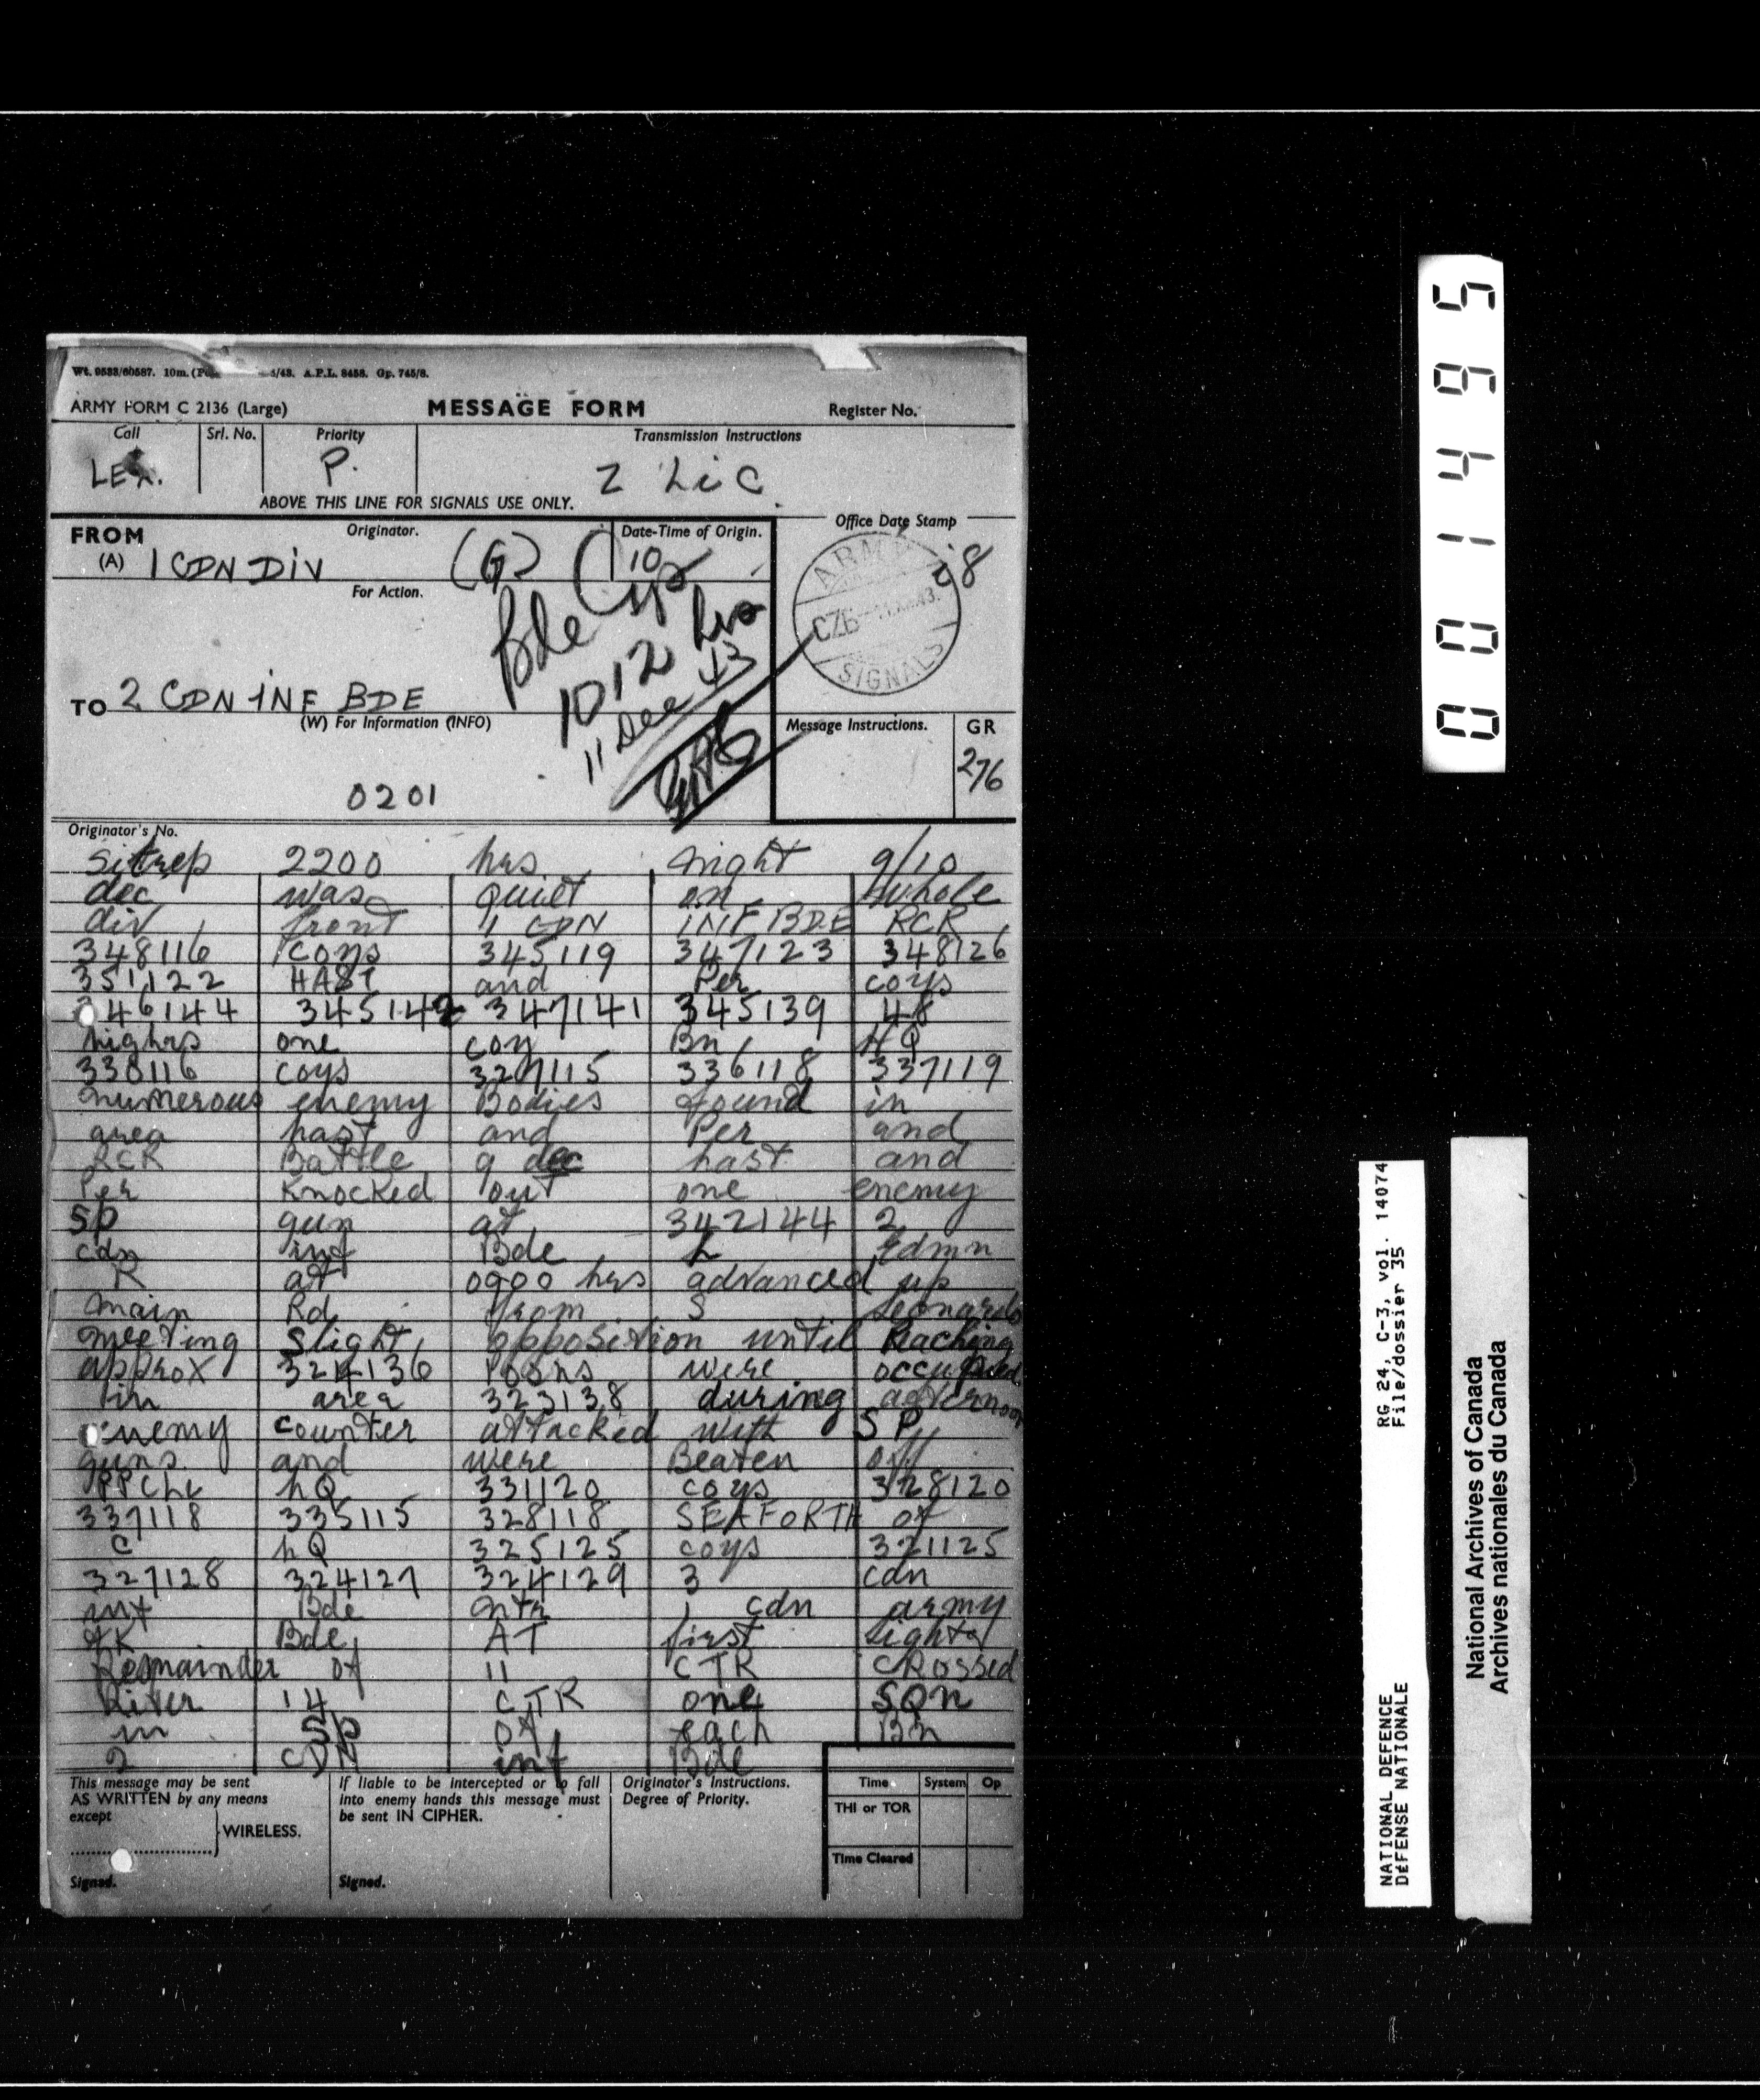 Wt. 9533/60587. 10m. 5/43. A.P.L. 8458. Gp. 745/8.
ARMY FORM C 2136 (Large) MESSAGE FORM Register No.
Call Srl. No. Priority Transmission Instructions
LEX. P. 2 Lic
ABOVE THIS LINE FOR SIGNALS USE ONLY.
FROM Originator. Date-Time of Origin. Office Date Stamp
(A) 1 CDN DIV (G) 10
For Action.
ARMY
CZG
SIGNALS
Bde
1012 hrs
11 Dec 43
TO 2 CDN INF BDE
(W) For Information (INFO) Message Instructions. GR
276
0201
Originator's No.
Sitrep 2200 hrs night 9/10
dec was quiet on whole
div front 1 CDN INF BDE RCR
348116 coys 345119 347123 348126
351122 HAST and Per coys
346144 345142 347141 345139 48
highrs one coy Bn HQ
338116 coys 327115 336118 337119
numerous enemy Bodies found in
area hast and Per and
RCR Battle 9 dec hast and
Per Knocked out one enemy
SP gun at 342144 2
cdn inf Bde L Edmn
R at 0900 hrs advanced up
main Rd from S Leonardo
meeting slight opposition until Reaching
approx 324136 Posns were occupied
in area 323138 during afternoon
enemy counter attacked with SP
guns and were Beaten off
PPCLI hQ 331120 coys 328120
337118 335115 328118 SEAFORTH of
C hQ 325125 coys 321125
327128 324127 324129 3 cdn
inf Bde ntr 1 cdn army
tK Bde AT first light
Remainder of 11 CTR CRossed
River 14 CTR one SQn
in SP of each Bn
2 CDN inf Bde
This message may be sent AS WRITTEN by any means except WIRELESS.
Signed.
If liable to be intercepted or to fall into enemy hands this message must be sent IN CIPHER.
Signed.
Originator's Instructions. Degree of Priority.
Time System Op
THI or TOR
Time Cleared
001495
RG 24, C-3, vol. 14074
File/dossier 35
NATIONAL DEFENCE
DÉFENSE NATIONALE
National Archives of Canada
Archives nationales du Canada